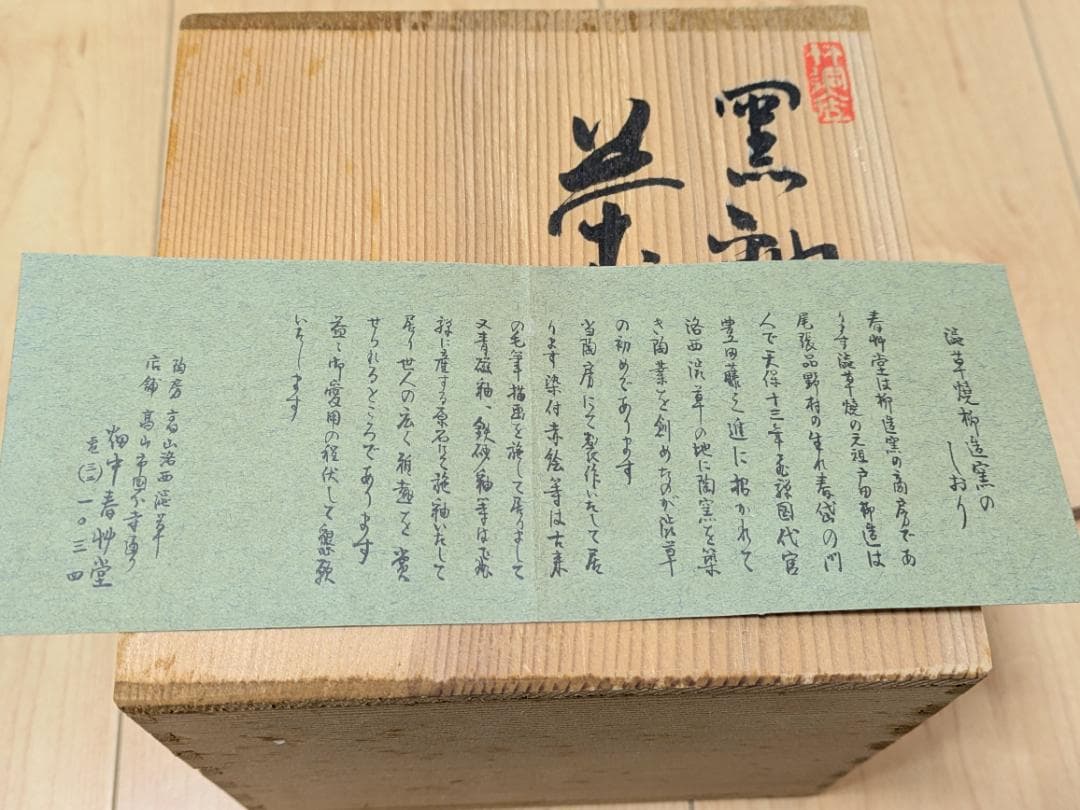 黒釉
茶
澁草焼柳造窯の
しおり
春艸堂は柳造窯の商房であ
ります澁草焼の元祖戸田柳造は
尾張品野村の生れ春岱の門
人で天保十三年飛騨国代官
豊田藤之進に招かれて
洛西澁草の地に陶窯を築
き陶業を創めたのが澁草
の初めであります
当陶房にて製作いたして居
ります染付赤絵等は古来
の毛筆描画を施して居りまして
又青磁釉、鉄砂釉等は飛
騨に産する原石にて施釉いたして
居り世人の広く雅趣を賞
せられるところであります
益々御愛用の程伏して懇願
いたします
陶房 高山洛西澁草
店舗 高山市国分寺通り
畑中春艸堂
電(三)一〇三四